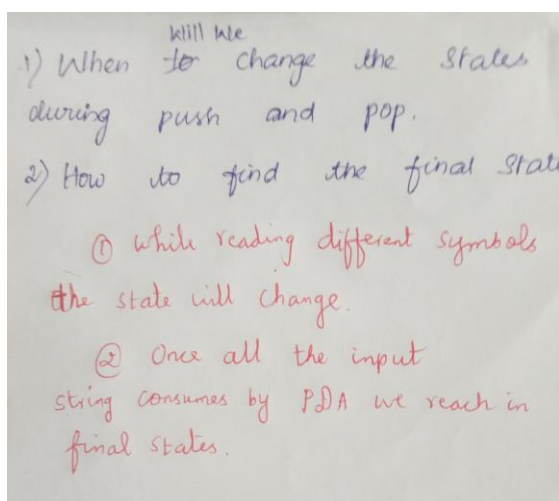 1) When will we change the states
during push and pop.
2) How to find the final state
① while reading different symbols
the state will change.
② Once all the input
string consumes by PDA we reach in
final states.